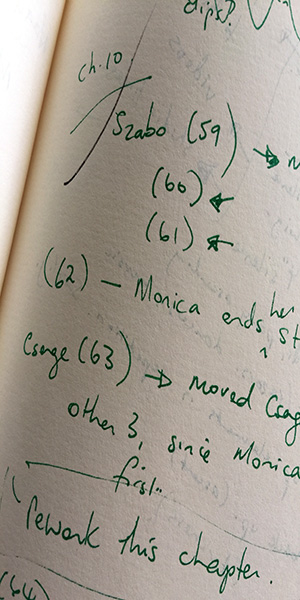 dips?
ch.10
Szabo (59) → M
(60) ←
(61) ←
(62) — Monica ends her St
Csage (63) → Moved Csag
other 3, since Monica
first.
Rework this chapter.
(64)